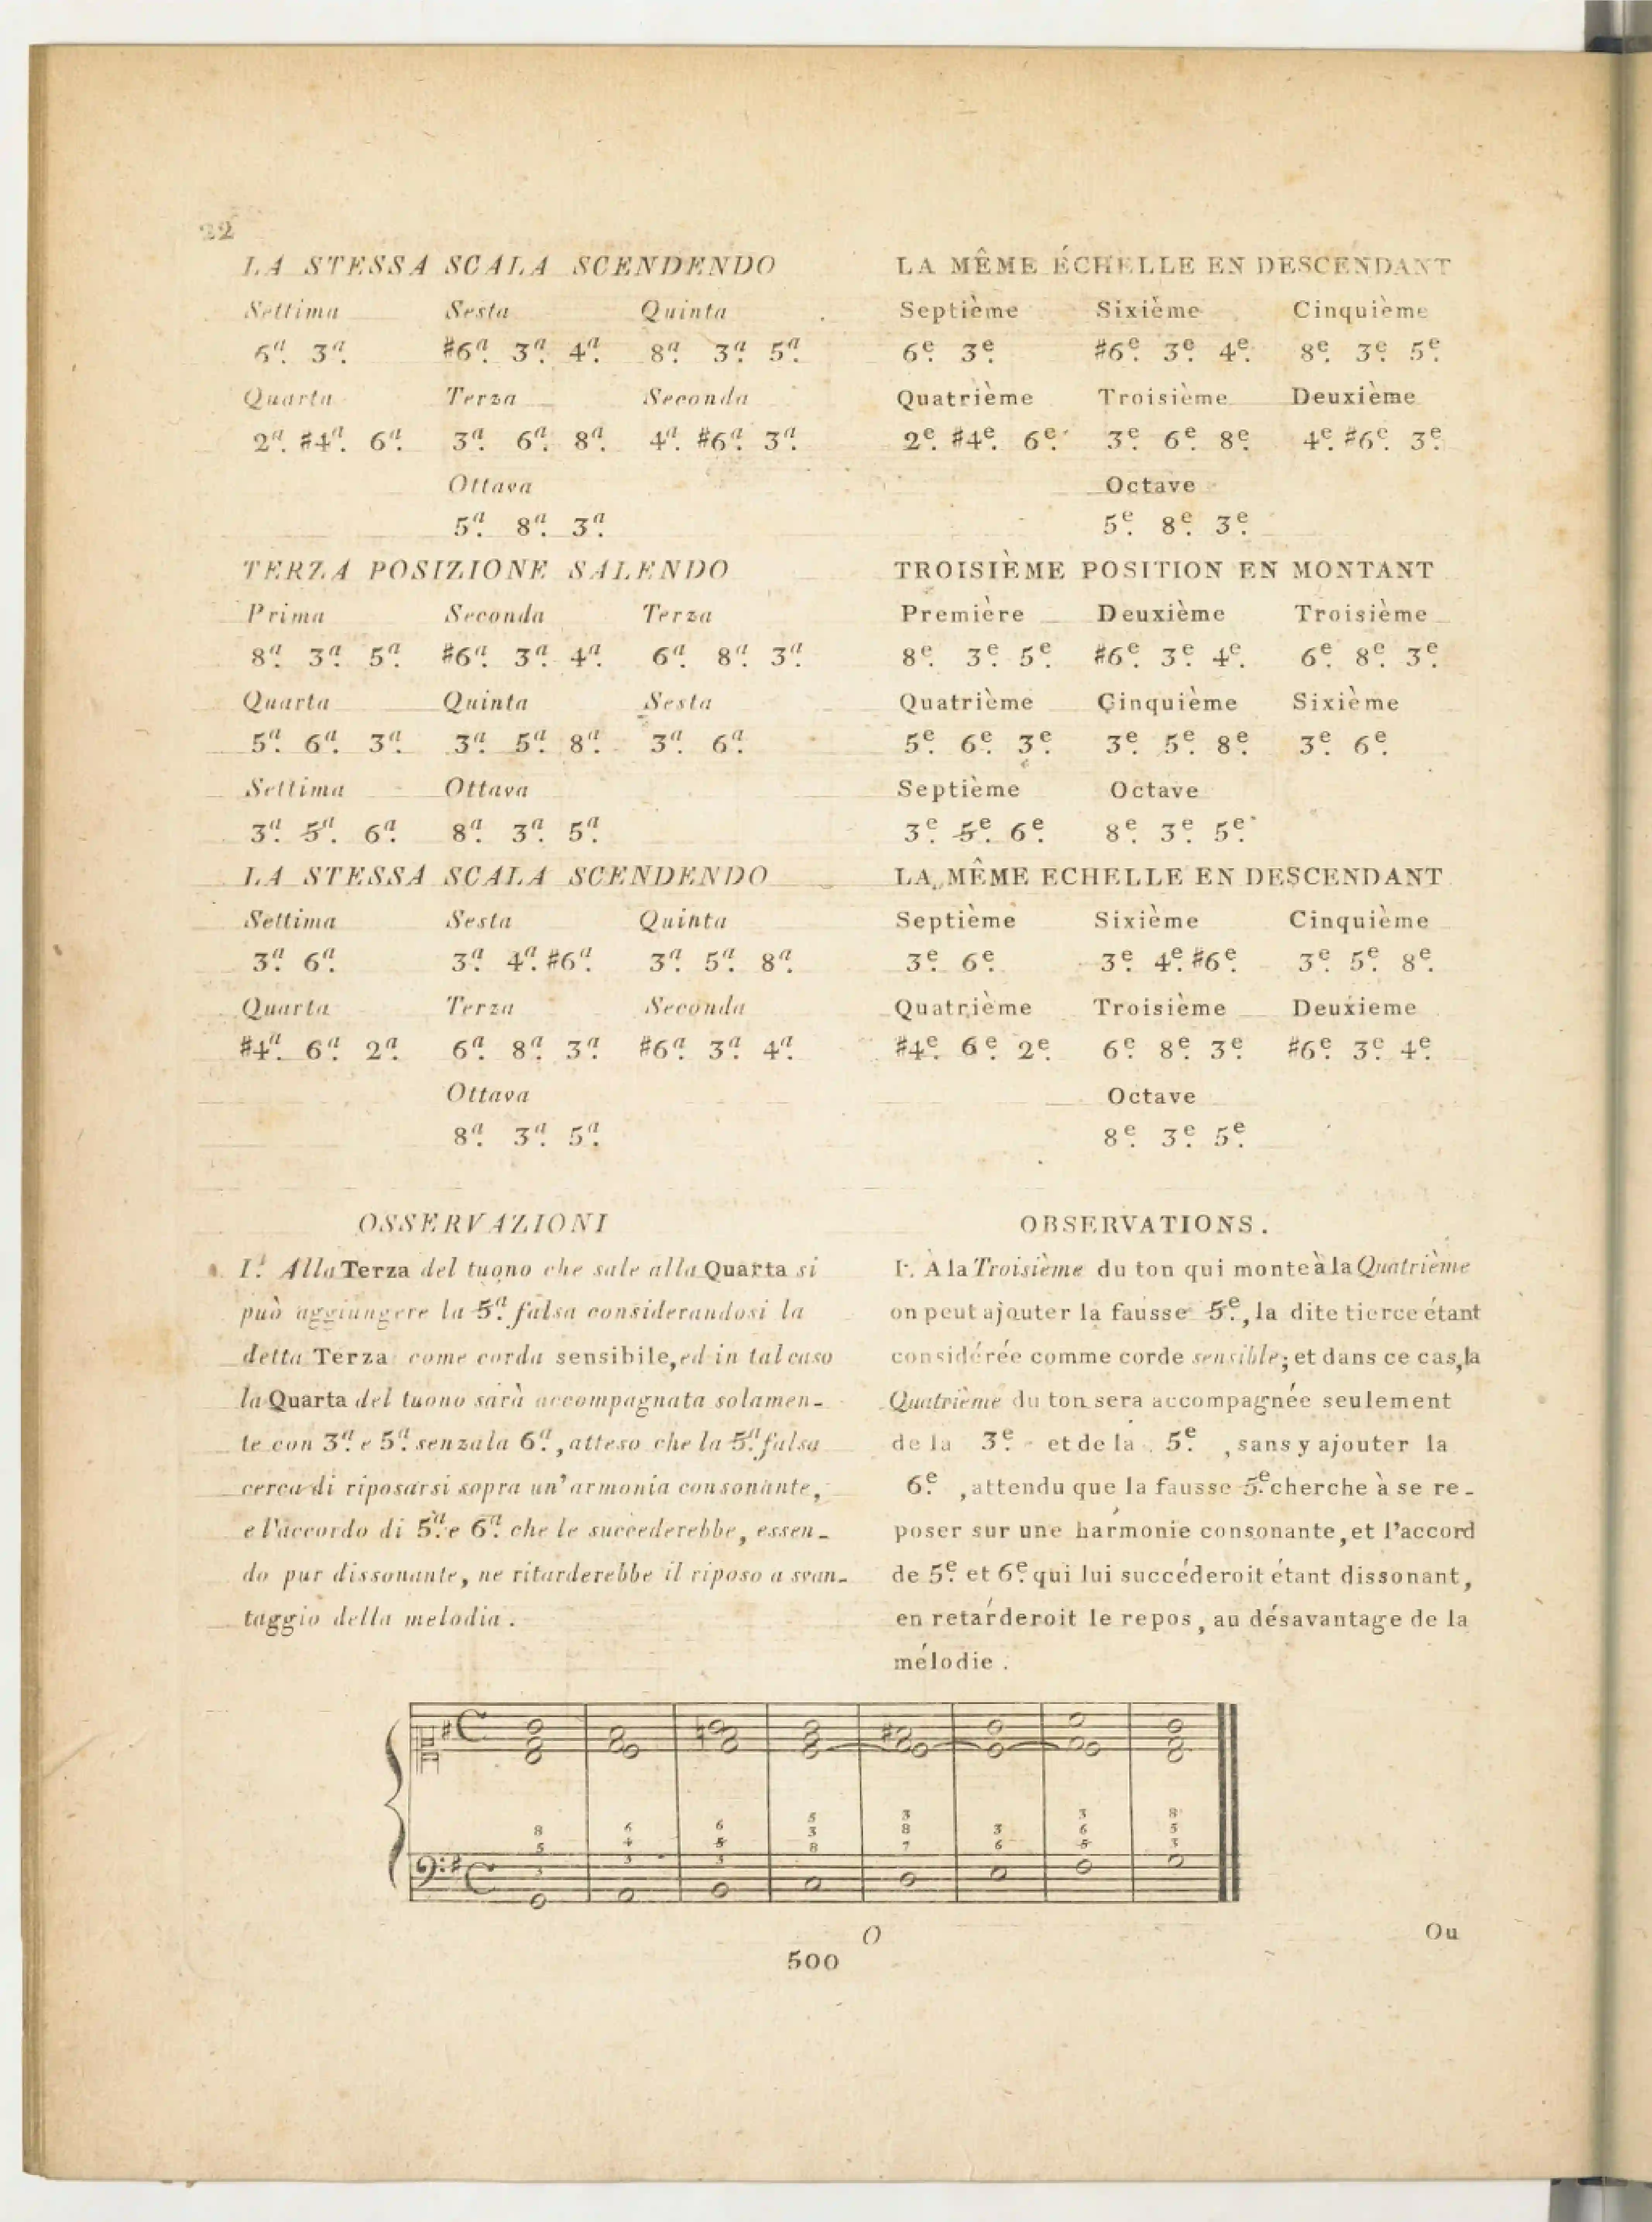 22
LA STESSA SCALA SCENDENDO
Settima Sesta Quinta
6.a 3.a #6.a 3.a 4.a 8.a 3.a 5.a
Quarta Terza Seconda
2.a #4.a 6.a 3.a 6.a 8.a 4.a #6.a 3.a
Ottava
5.a 8.a 3.a
TERZA POSIZIONE SALENDO
Prima Seconda Terza
8.a 3.a 5.a #6.a 3.a 4.a 6.a 8.a 3.a
Quarta Quinta Sesta
5.a 6.a 3.a 3.a 5.a 8.a 3.a 6.a
Settima Ottava
3.a 5.a 6.a 8.a 3.a 5.a
LA STESSA SCALA SCENDENDO
Settima Sesta Quinta
3.a 6.a 3.a 4.a #6.a 3.a 5.a 8.a
Quarta Terza Seconda
#4.a 6.a 2.a 6.a 8.a 3.a #6.a 3.a 4.a
Ottava
8.a 3.a 5.a
OSSERVAZIONI
I.a Alla Terza del tuono che sale alla Quarta si
può aggiungere la 5.a falsa considerandosi la
detta Terza come corda sensibile, ed in tal caso
la Quarta del tuono sarà accompagnata solamen-
te con 3.a e 5.a senza la 6.a, atteso che la 5.a falsa
cerca di riposarsi sopra un'armonia consonante,
e l'accordo di 5.a e 6.a che le succederebbe, essen-
do pur dissonante, ne ritarderebbe il riposo a svan-
taggio della melodia.
LA MÊME ÉCHELLE EN DESCENDANT
Septième Sixième Cinquième
6.e 3.e #6.e 3.e 4.e 8.e 3.e 5.e
Quatrième Troisième Deuxième
2.e #4.e 6.e 3.e 6.e 8.e 4.e #6.e 3.e
Octave
5.e 8.e 3.e
TROISIÈME POSITION EN MONTANT
Première Deuxième Troisième
8.e 3.e 5.e #6.e 3.e 4.e 6.e 8.e 3.e
Quatrième Cinquième Sixième
5.e 6.e 3.e 3.e 5.e 8.e 3.e 6.e
Septième Octave
3.e 5.e 6.e 8.e 3.e 5.e
LA MÊME ECHELLE EN DESCENDANT
Septième Sixième Cinquième
3.e 6.e 3.e 4.e #6.e 3.e 5.e 8.e
Quatrième Troisième Deuxieme
#4.e 6.e 2.e 6.e 8.e 3.e #6.e 3.e 4.e
Octave
8.e 3.e 5.e
OBSERVATIONS.
I.e À la Troisième du ton qui monte à la Quatrième
on peut ajouter la fausse 5.e, la dite tierce étant
considérée comme corde sensible; et dans ce cas, la
Quatrième du ton sera accompagnée seulement
de la 3.e et de la 5.e, sans y ajouter la
6.e, attendu que la fausse 5.e cherche à se re-
poser sur une harmonie consonante, et l'accord
de 5.e et 6.e qui lui succéderoit étant dissonant,
en retarderoit le repos, au désavantage de la
mélodie.
8 6 6 5 3 3 3 8
5 4 5 3 8 6 6 5
3 3 3 8 7 5 3
O Ou
500